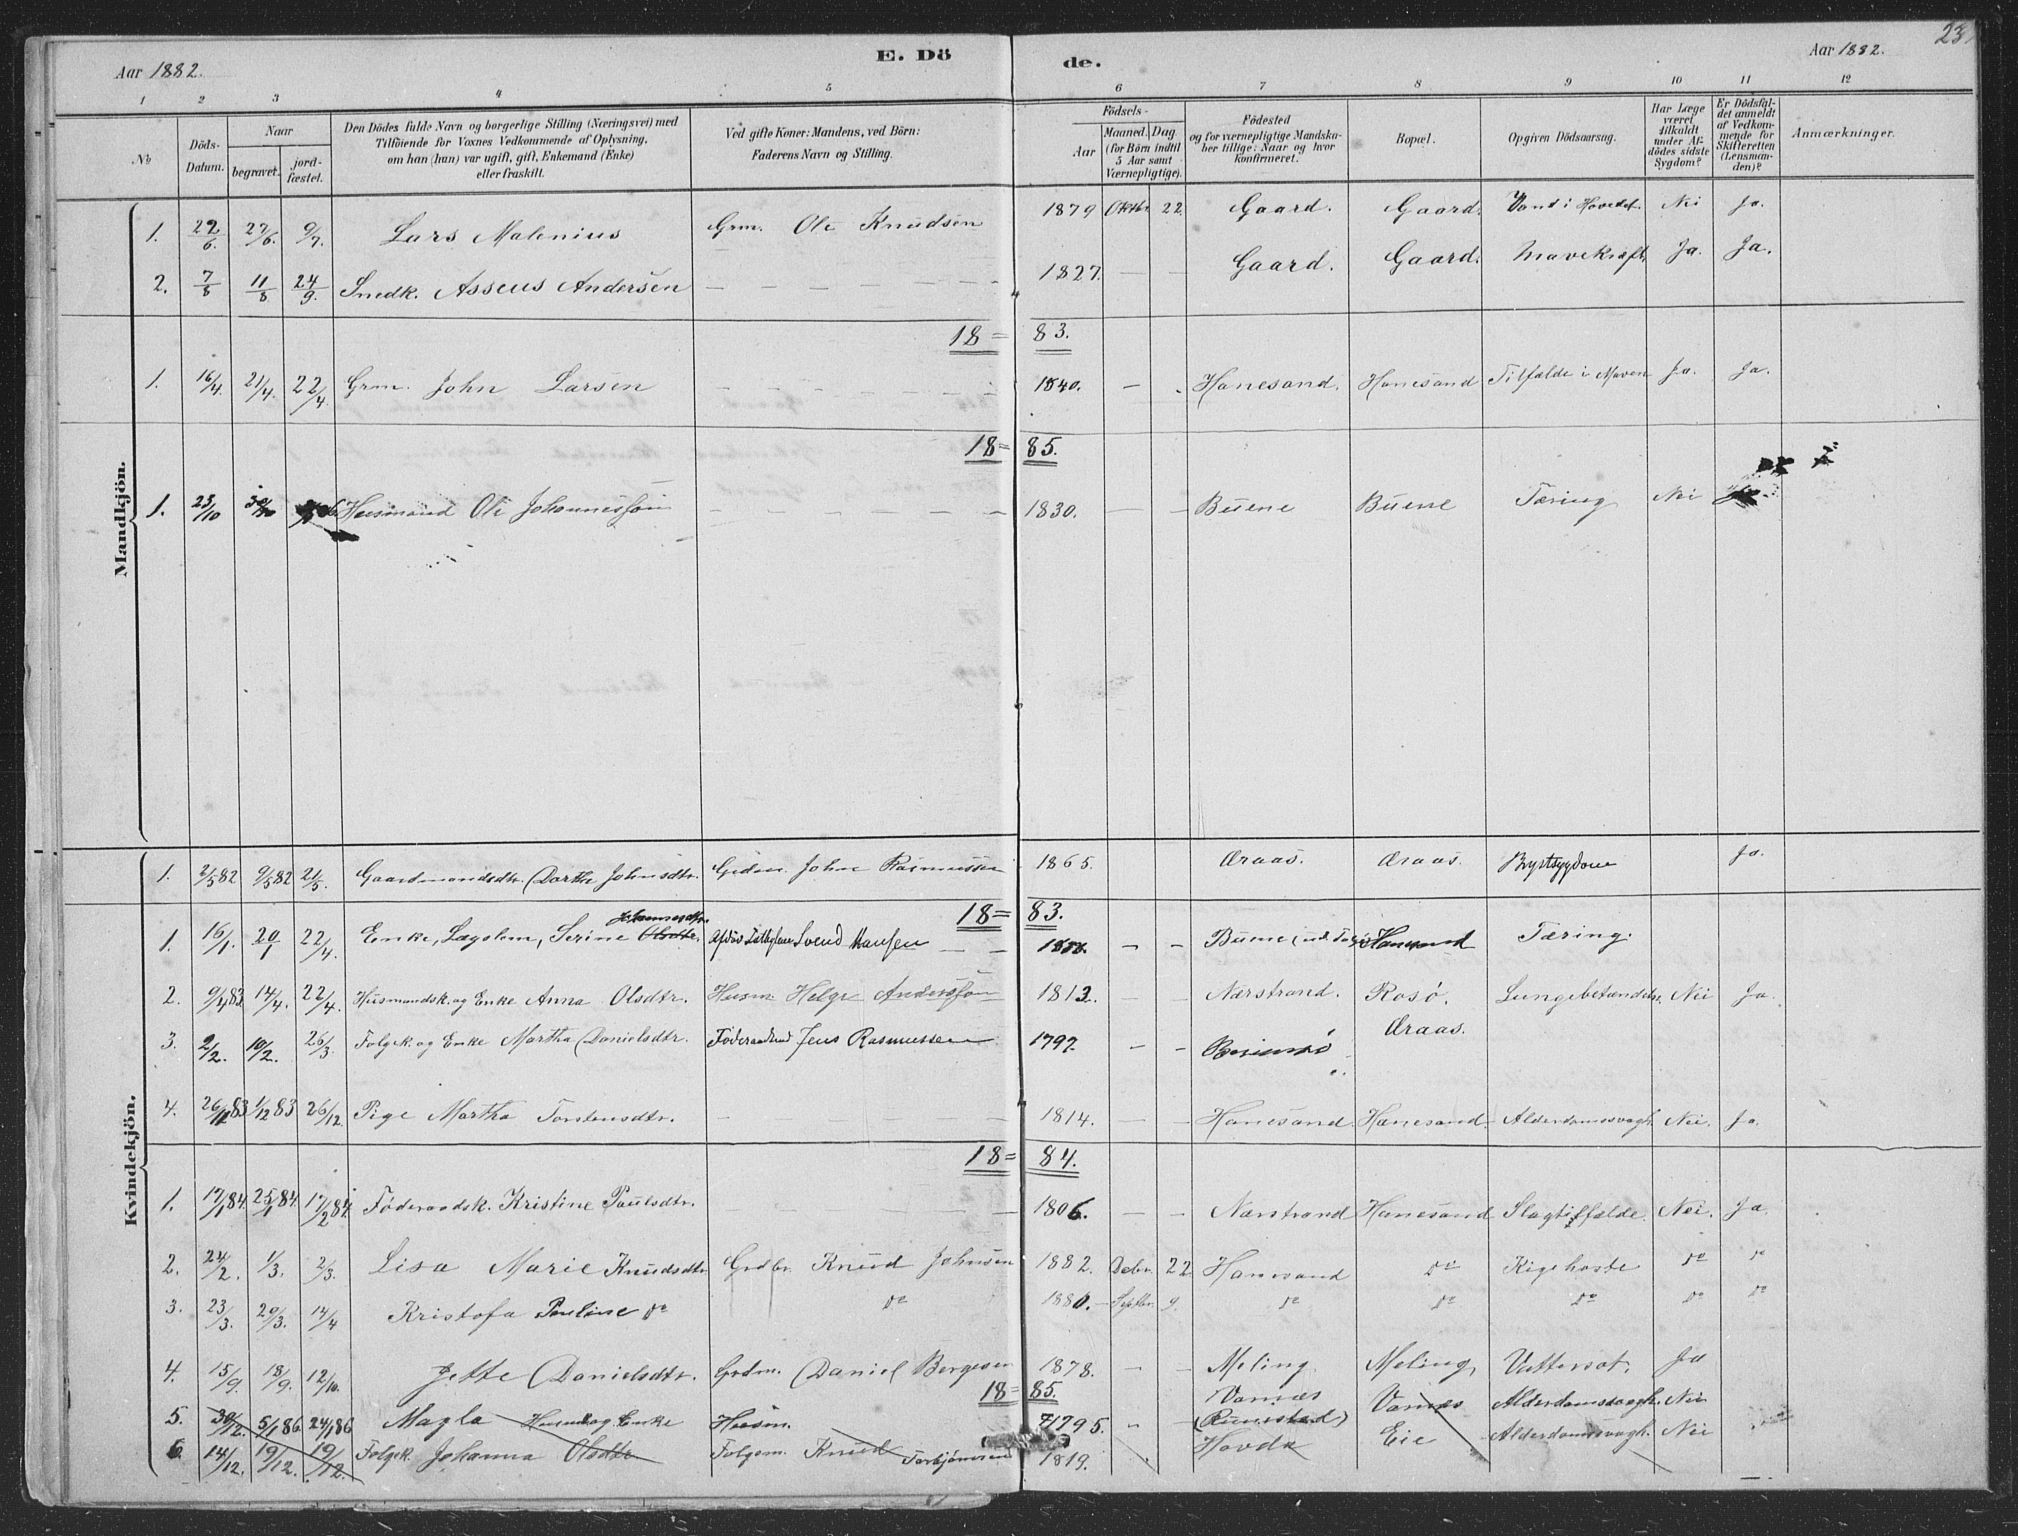 23
Aar 1882.
E. Dö
de.
Aar 1882.
1 2 3 4 5 6 7 8 9 10 11 12
No
Döds-Datum.
Naar
begravet.
jord-fæstet.
Den Dödes fulde Navn og borgerlige Stilling (Næringsvei) med
Tilföiende for Voxnes Vedkommende af Oplysning,
om han (hun) var ugift, gift, Enkemand (Enke)
eller fraskilt.
Ved gifte Koner: Mandens, ved Börn:
Faderens Navn og Stilling.
Födsels-
Aar
Maaned. Dag.
(for Börn indtil
5 Aar samt
Værnepligtige).
Födested
og for værnepligtige Mandska-
ber tillige: Naar og hvor
konfirmeret.
Bopæl.
Opgiven Dödsaarsag.
Har Læge
været
tilkaldt
under Af-
dödes sidste
Sygdom?
Er Dödsfal-
det anmeldt
af Vedkom-
mende for
Skifteretten
(Lensman-
den)?
Anmærkninger.
Mandkjön.
1. 22/6. 27/6. 9/7. Lars Malenius Grm. Ole Knudsen 1879 Oktbr. 22. Gaard. Gaard. Vand i Hovedet. Nei Ja.
2. 7/8 11/8 24/9. Smedk. Asseus Andersen — — 1827. — — Gaard. Gaard. Mavekræft. Ja. Ja.
18= 83.
1. 16/4. 21/4. 22/4. Grm. John Larsen — — 1840. — Hanesand. Hanesand Tilfælde i Maven Ja. Ja.
18= 85.
1. 23/10 30/10 Husmand Ole Johannessøn — — 1830. — — Buene Buene Tæring Nei
Kvindekjön.
1. 2/5 82 9/5 82 21/5. Gaardmandsdtr. Dorthe Johnsdtr. John Rasmussen 1865. Æraas. Æraas. Brystsygdom Ja.
18= 83.
1. 16/1. 20/1 22/4. Enke, Lægslem, Serine Olsdtr. Johannesdtr. Svend Hansen — — Buene Hanesand Tæring.
2. 9/4 83 14/4. 22/4. Husmandsk. og Enke Anna Olsdtr. Husm Helge Anderssøn 1813. Nærstrand. Rosö. Lungebetændelse. Nei Ja.
3. 2/2. 10/2. 26/3. Folgek. og Enke Martha Danielsdtr. Føderaadsmd Jens Rasmussen 1797. — — Æraas.
4. 26/11 83 1/12 83 26/12 Pige Martha Torstensdtr. — — 1814. — — Hanesand Hanesand. Alderdomssvagh. Nei. Ja.
18= 84.
1. 17/1 84. 25/1 84. 17/2 84. Føderaadsk. Kristine Paulsdtr. — — 1806. — — Nærstrand Hanesand Slagtilfælde. Nei. Ja.
2. 24/2. 1/3. 2/3. Lisa Marie Knudsdtr. Grdbr. Knud Johnsen 1882. Debr. 22 Hanesand do Kigehoste do do
3. 23/3. 29/3. 14/4 Kristofa Pauline do do 1880. Septbr. 9. do do do do do
4. 15/9. 18/9. 12/10. Jette Danielsdtr. Grdm. Daniel Bergesen 1878. — — Meling Meling, Vattersot. Ja
18= 85.
5. 30/12. 5/1 86. 24/1 86 Magla Enke Husm. 1795. — Vannes (Runestad) Vannes Alderdomssvagh. Nei
6. 14/12. 19/12. 19/12. Folgek. Johanna Olsdtr Folgem. Knud Torbjørnsen 1819. Hovda Eie Alderdomssvagh. Nei